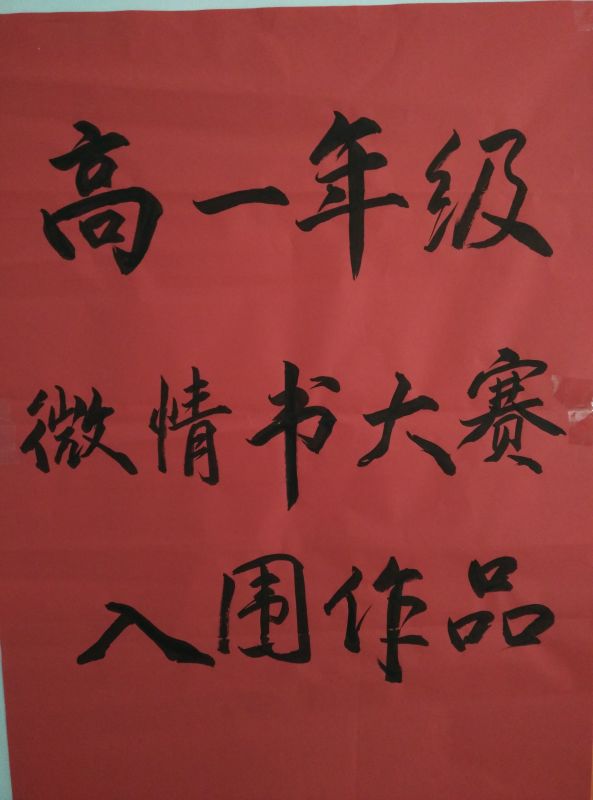 高一年级
微情书大赛
入围作品